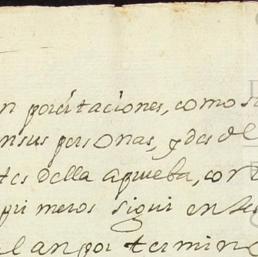 n por citaciones, como s
en sus personas, y dos de
tes de lla aprueba, con
primeros siguien se
lan por termin